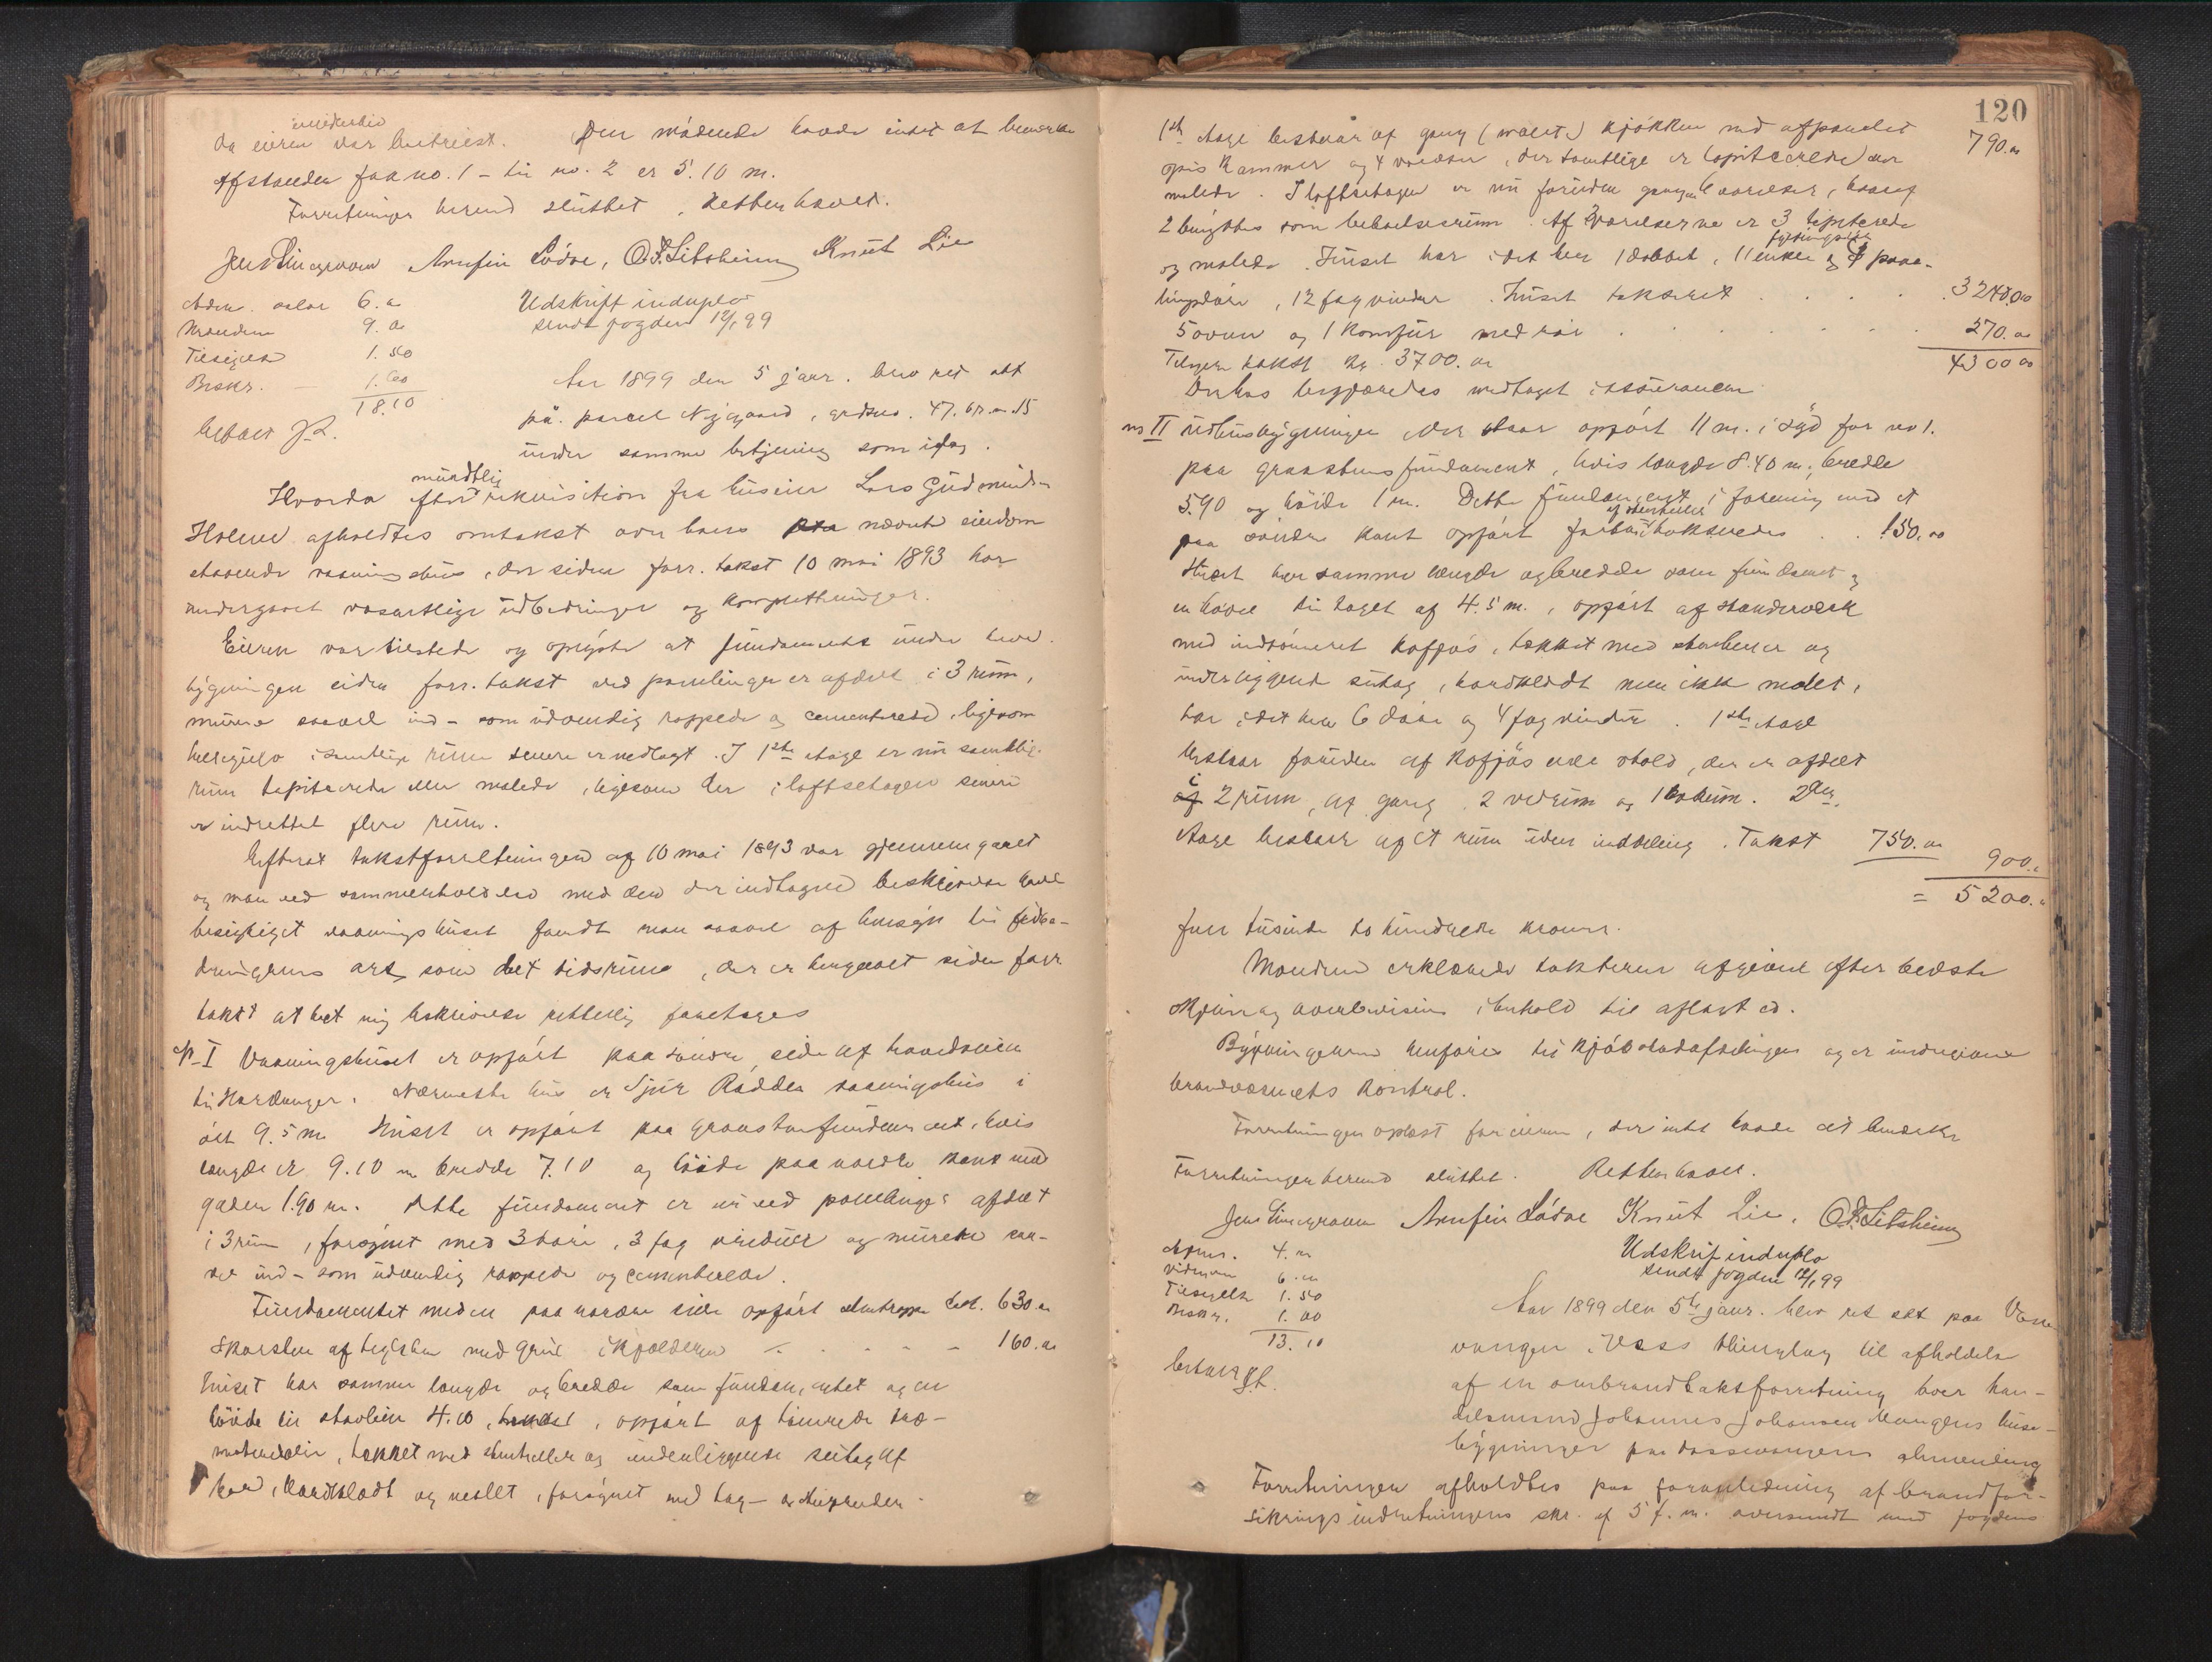 imidlertid
da eieren var bortreist. Den mødende havde intet at bemærke
Afstanden fra no. 1 – til no. 2 er 5.10 m.
Forretningen hermed sluttet. Retten hævet.
Arnfin Lødve, O. S. Litsheim Knut Lie
6.00
Mændene 9.00
Tilsigelse 1.50
Beskr. — 1.60
18.10
Betalt
Udskrift induplo
sendt fogden 12/1 99
Aar 1899 den 5 janr. blev ret sat
på parcel Nygaard, grdsno. 47. br.no 15
under samme betjening som idag.
Hvorda efter mundtlig rekvisition fra huseier Lars Gudmunds-
Holme afholdtes omtakst over hans nævnte eiendom
staaende vaaningshus, der siden forr. takst 10 mai 1893 har
undergaaet væsentlige udbedringer og kompletteringer.
Eieren var tilstede og oplyste at fundamentet under hoved-
bygningen siden forr. takst ved panelinger er afdelt i 3 rum,
murene saavel ind- som udvendig rappede og cementerede, ligesom
hellegulv i samtlige rum senere er nedlagt. I 1ste etage er nu samtlige
rum tapitserede eller malede, ligesom der i loftsetagen senere
er indrettet flere rum.
Efterat takstforretningen af 10 mai 1893 var gjennemgaaet
og man ved sammenhold med den der indtagne beskrivelse havde
besigtiget vaaningshuset fandt man saavel af hensyn til udbe-
dringens art som det tidsrum, der er hengaaet siden forr.
takst at det ny beskrivelse rettelig foretages
No I Vaaningshuset er opført paa søndre side af hovedveien
til Hardanger. Nærmeste hus er Sjur Rødder vaaningshus i
øst 9.5 m. Huset er opført paa graastensfundament, hvis
længde er 9.10 m bredde 7.10 og høide paa nordre kant mod
gaden 1.90 m. Dette fundament er nu ved panelinger afdelt
i 3 rum, forsynet med 3 døre, 3 fag vinduer og murene saa-
vel ind- som udvendig rappede og cementerede.
Fundamentet med en paa nordre side opført stentrappe takst. 630.00
Skorsten af teglsten med grue i kjælderen 160.00
Huset har samme længde og bredde som fundamentet og en
høide til stavlein 4.10, opført af tømrede træ-
materialier, tækket med stenheller og underliggende sutag af
bord, bordklædt og malet, forsynet med tag- og
120
1ste etage bestaar af gang (malet) kjøkken med afpanelet
790.00
spiskammer og 4 værelser, der samtlige er tapitserede eller
malede. I loftsetagen er nu foruden gangen 6 værelser, hvoraf
2 benyttes som beboelsesrum. Af værelserne er 3 tapitserede
og malede. Huset har i det hele 1 dobbelt, 11 enkle fyldingsdøre og 7 pane-
lingsdøre, 12 fag vinduer. Huset takseret . . . . . 3240.00
5 ovne og 1 komfur med rør . . . . . . . . 270.00
Tidligere takst kr. 3700.00
4300.00
Derhos begjæredes medtaget i assurancen
no II Udhusbygningen der staar opført 11 m. i syd for no 1.
paa graastensfundament, hvis længde 8.40 m, bredde
5.90 og høide 1 m. Dette fundament i forening med et
paa søndre kant opført af stenheller takseredes . . 150.00
Huset har samme længde og bredde som fundament og
en høide til taget af 4.5 m., opført af standerværk
med indtømmeret kofjøs, tækket med stenheller og
underliggende sutag, bordklædt men ikke malet,
har i det hele 6 døre og 4 fag vinduer. 1ste etage
bestaar foruden af kofjøs eller stald, der er afdelt
i 2 rum, af gang, 2 vedrum og 1 torum. 2den
etage bestaar af et rum uden inddeling. Takst 750.00
900.00
= 5200.00
fem tusinde to hundrede kroner.
Mændene erklærede taksterne afgivne efter bedste
skjøn og overbevisning i henhold til aflagt ed.
Bygningerne henføres til kjøbstadafdelingen og er undergivne
brandvæsenets kontrol.
Forretningen oplæst for eieren, der intet havde at bemærke
Forretningen hermed sluttet. Retten hævet.
Arnfin Lødve Knut Lie, O. S. Litsheim
4.00
6.00
Tilsigelse 1.50
Beskr. 1.60
13.10
betalt
Udskrift induplo
sendt fogden 12/1 99
Aar 1899 den 5te janr. blev ret sat paa Vosse-
vangen, Voss thinglag til afholdelse
af en ombrandtakstforretning over han-
delsmand Johannes Johansen Mølsters huse-
bygninger paa Vossevangens almending
Forretningen afholdtes paa foranledning af brandfor-
sikringsindretningens skr. af 5 f.m. oversendt med fogdens